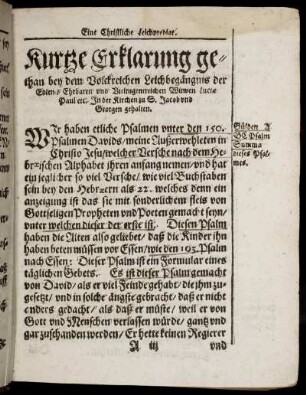 Eine Christliche Leichpredigt.
Kurtze Erklärung ge-
than bey dem Volckreichen Leichbegängnis der
Edlen / Ehrbaren vnd Vieltugentreichen Witwen
Paul etc. In der Kirchen zu S. Jacob vnd
Georgen gehalten.
WIr haben etliche Psalmen vnter den 150.
Psalmen Davids / meine Außerwehleten in
Christo Jesu / welcher Versche nach dem He-
breischen Alphabet ihren anfang nemen / vnd hat
ein jeglicher so viel Versche / wie viel Buchstaben
sein bey den Hebreern als 22. welches denn ein
anzeigung ist das sie mit sonderlichem fleis von
Gottseligen Propheten vnd Poeten gemacht seyn /
vnter welchen dieser der erste ist. Diesen Psalm
haben die Alten also geliebet / daß die Kinder ihn
haben beten müssen vor Essen / wie den 145. Psalm
nach Essen: Dieser Psalm ist ein Formular eines
täglichen Gebets. Es ist dieser Psalm gemacht
von David / als er viel Feinde gehabt / die jhm zu-
gesetzt / vnd in solche ängste gebracht / daß er nicht
anders gedacht / als daß er müste / weil er von
Gott vnd Menschen verlassen würde / gantz vnd
gar zuschanden werden / Er hette keinen Regierer
A iij
vnd
Psalm
Summa
dieses Psal-
mes.